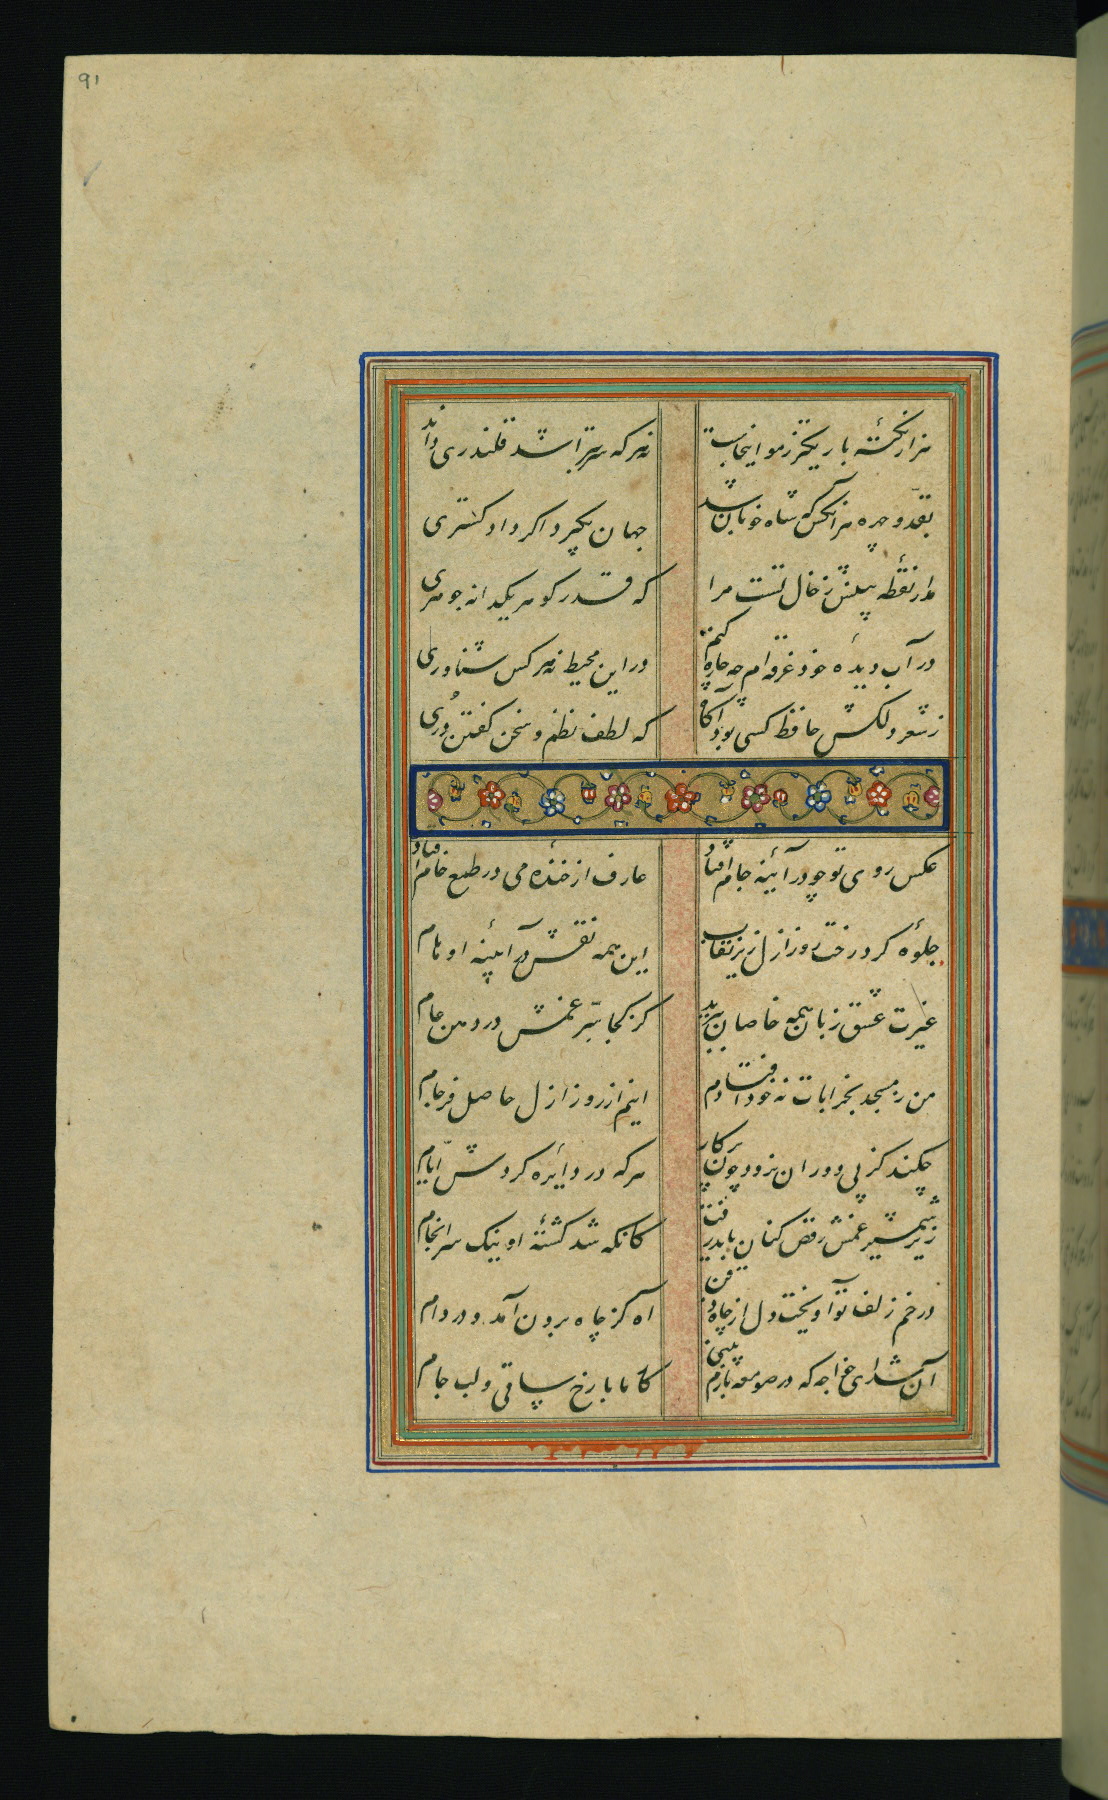 91
هزار نکتهٔ باریکتر ز مو اینجاست نه هر که سر بتراشد قلندری داند
بقد و چهره هر آنکس که شاه خوبان شد جهان بگیرد اگر دادگستری
مدار نقطه بینش ز خال تست مرا که قدر گوهر یکدانه جوهری
در آب دیدهٔ خود غرقه‌ام چه چاره کنم در این محیط نه هر کس شناوری
ز شعر دلکش حافظ کسی بود آگاه که لطف نظم و سخن گفتن دری
عکس روی تو چو در آینه جام افتاد عارف از خنده می در طمع خام افتاد
جلوهٔ کرد رخت روز ازل زیر نقاب این همه نقش در آیینه اوهام
غیرت عشق زبان همه خاصان ببرید کز کجا سرّ غمش در دهن عام
من ز مسجد بخرابات نه خود افتادم اینم از روز ازل حاصل فرجام
چکند کز پی دوران نرود چون پرکار هر که در دایره گردش ایّام
زیر شمشیر غمش رقص کنان باید رفت کانکه شد کشتهٔ او نیک سرانجام
در خم زلف تو آویخت دل از چاه ذقن آه کز چاه برون آمد و در دام
آن شد ای خواجه که در صومعه بازم بینی کار ما با رخ ساقی و لب جام